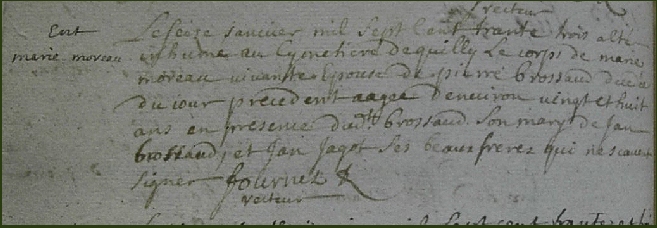 recteur
Cort
marie moreau
Le seize janvier mil sept cent trante trois a été
inhumé au Cymetiere de quilly Le corps de marie
moreau vivante Epouse de pierre brossaud decedee
du jour precedent aagee denviron vingt et huit
ans en presence dudt brossaud son mary de Jan
brossaud, et Jan Jagot ses beaux freres qui ne scavent
signer fournet
recteur
mil sept cent trante